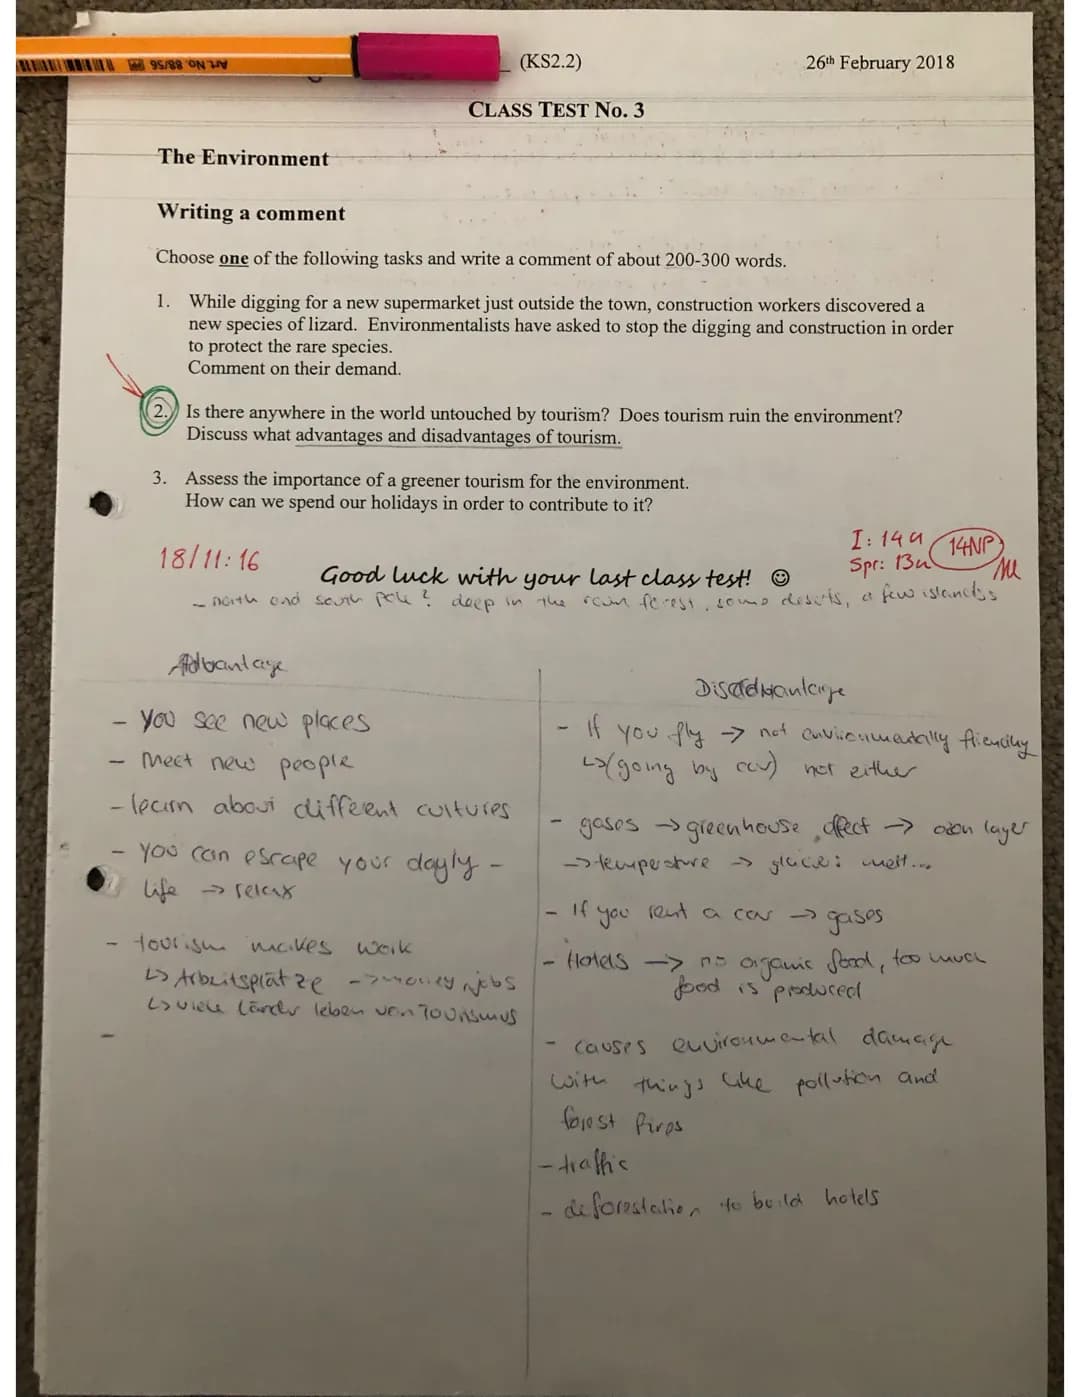 Art. No. 88/56
(KS2.2)
26th February 2018
CLASS TEST No. 3
The Environment
Writing a comment
Choose one of the following tasks and write a comment of about 200-300 words.
1. While digging for a new supermarket just outside the town, construction workers discovered a
new species of lizard. Environmentalists have asked to stop the digging and construction in order
to protect the rare species.
Comment on their demand.
2. Is there anywhere in the world untouched by tourism? Does tourism ruin the environment?
Discuss what advantages and disadvantages of tourism.
3. Assess the importance of a greener tourism for the environment.
How can we spend our holidays in order to contribute to it?
18/11:16
I: 14u
Spr: 13u
14NP
Good luck with your last class test! ☺
- north and south pole? deep in the rain forest, some deserts, a few islands
Advantage
- you see new places
- Meet new people
- learn about different cultures
- you can escape your dayly -
life → relax
- tourism makes work
↳ Arbeitsplätze -> money, jobs
↳ viele Länder leben von Tourismus
-
Disadvantage
- If you fly → not environmentally friendly
↳ (going by car) not either
- gases → greenhouse effect → ozon layer
→ temperature → melt...
- If you rent a car → gases
- Hotels → no organic food, too much
food is produced
- causes environmental damage
with things like pollution and
forest fires
- traffic
- deforestation to build hotels